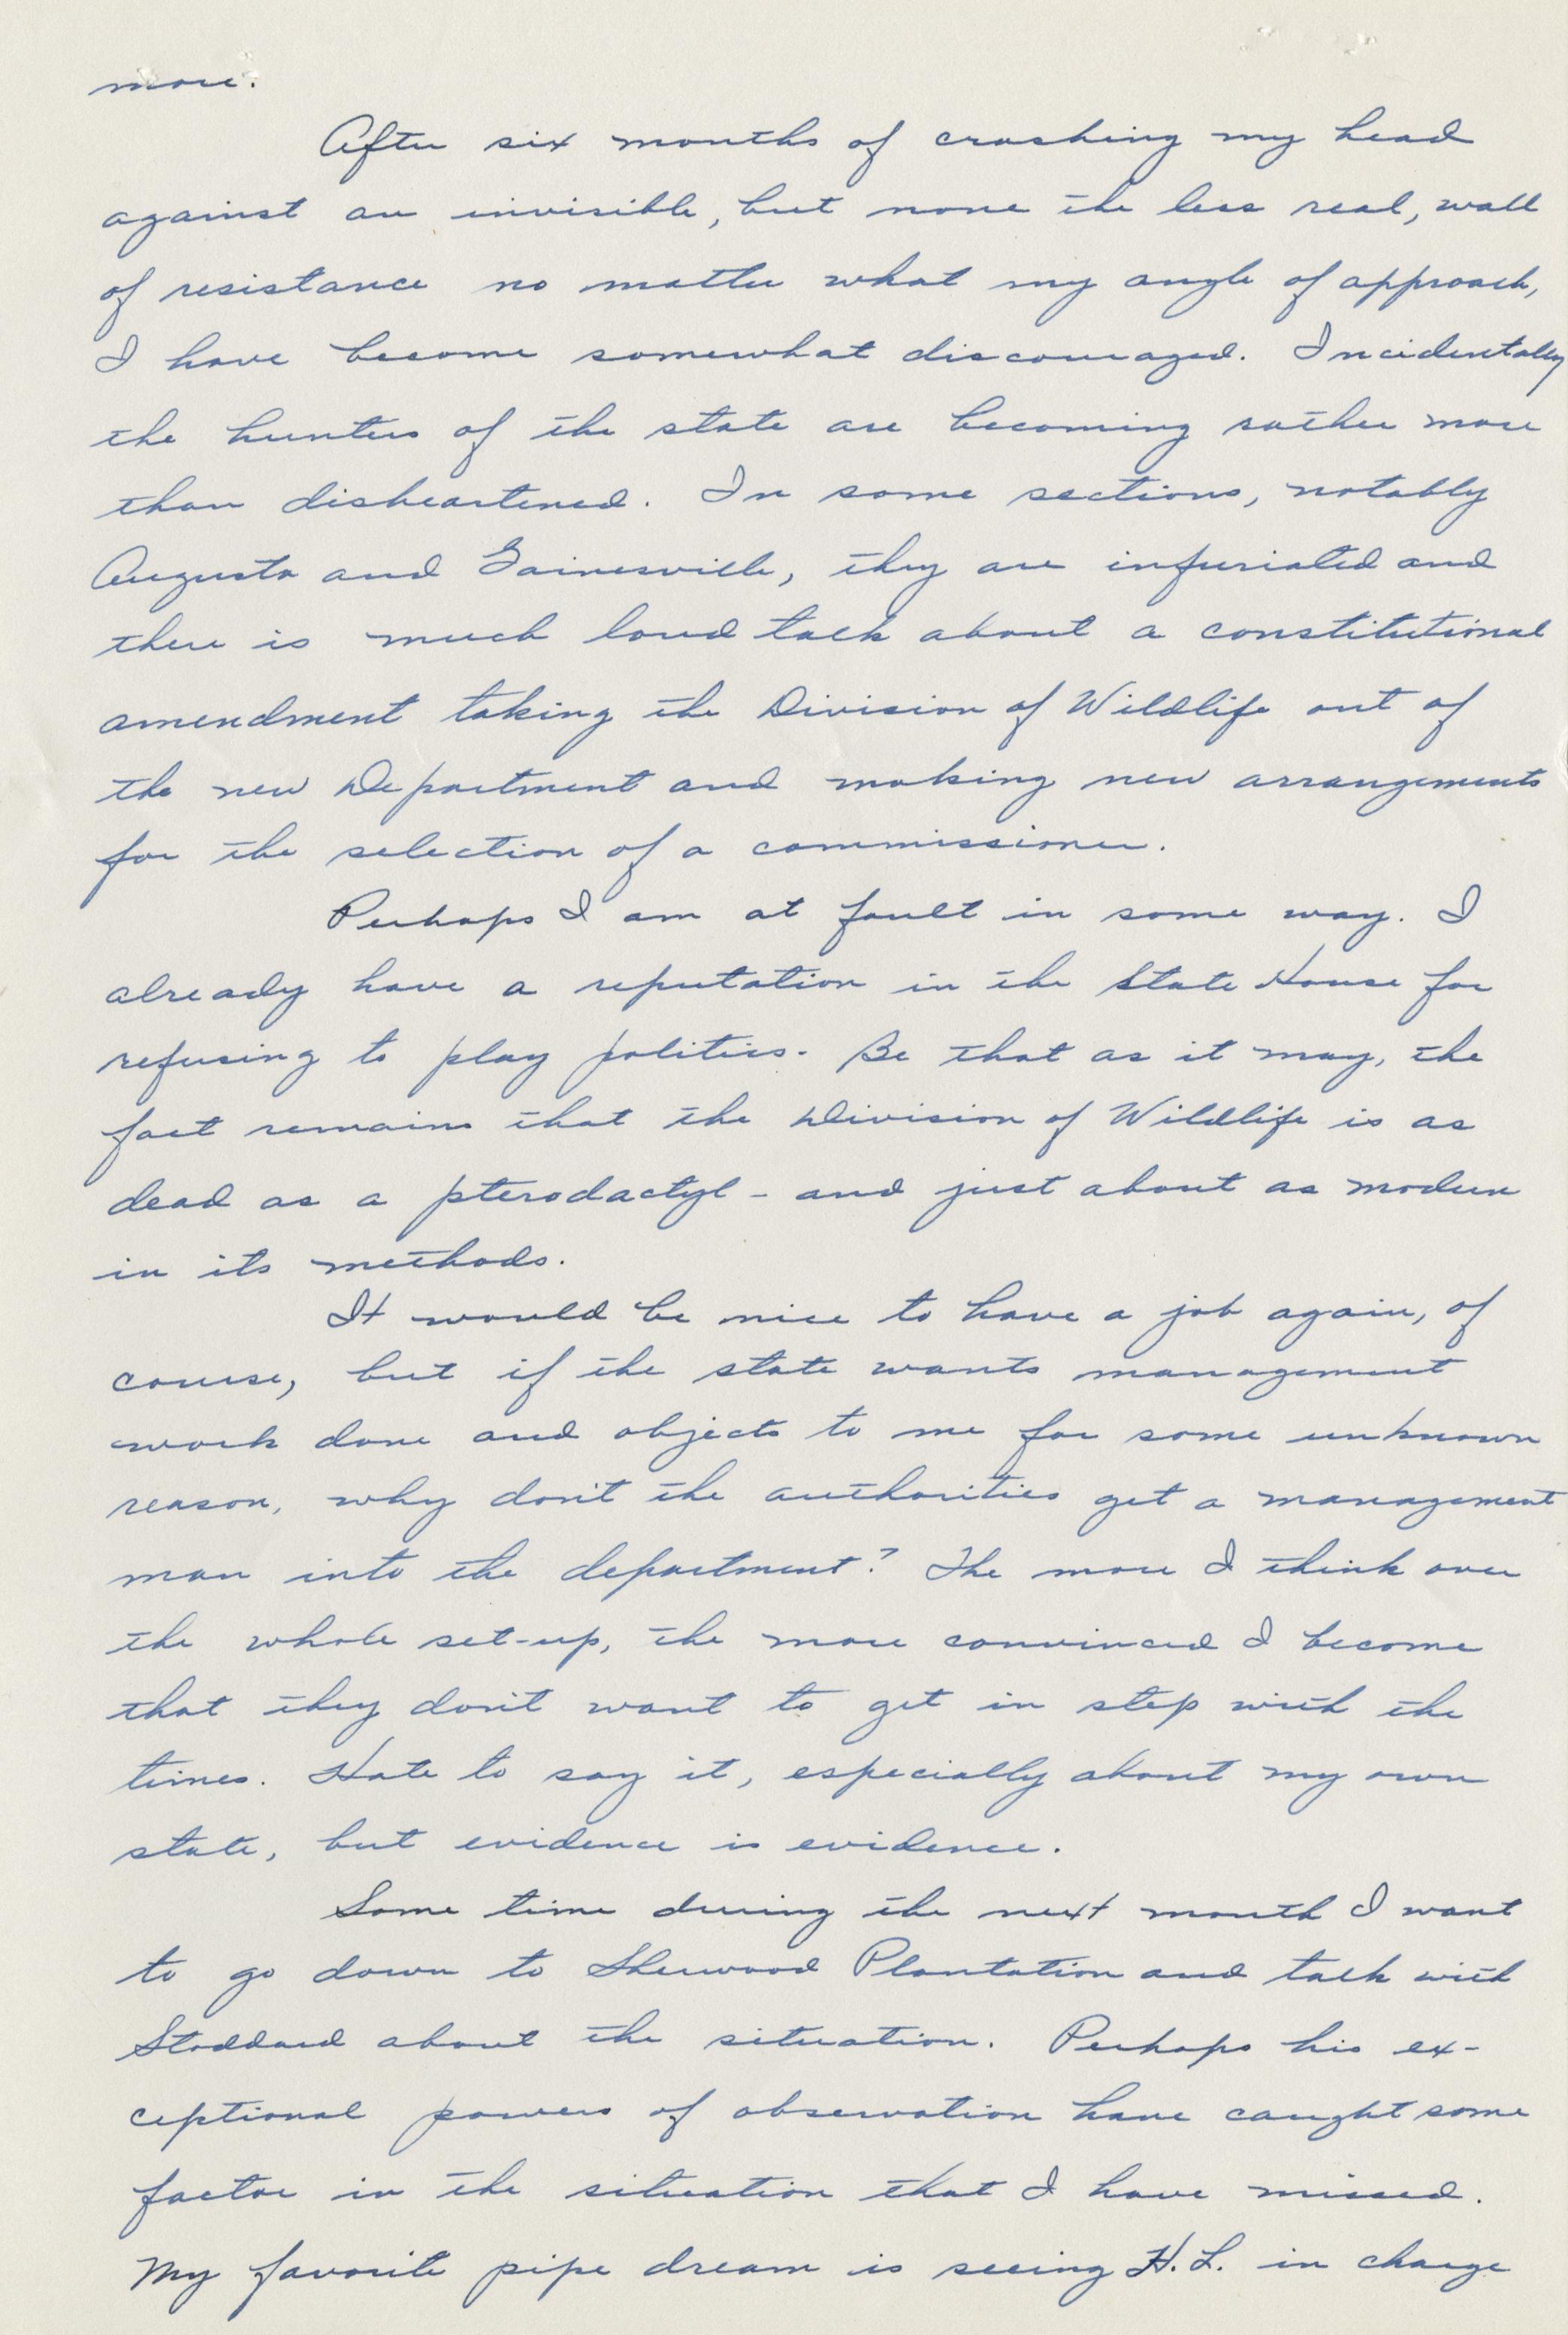 more.
After six months of crashing my head
against an invisible, but none the less real, wall
of resistance no matter what my angle of approach,
I have become somewhat discouraged. Incidentally
the hunters of the state are becoming rather more
than disheartened. In some sections, notably
Augusta and Gainesville, they are infuriated and
there is much loud talk about a constitutional
amendment taking the Division of Wildlife out of
the new Department and making new arrangements
for the selection of a commissioner.
Perhaps I am at fault in some way. I
already have a reputation in the State House for
refusing to play politics. Be that as it may, the
fact remains that the Division of Wildlife is as
dead as a pterodactyl - and just about as modern
in its methods.
It would be nice to have a job again, of
course, but if the state wants management
work done and objects to me for some unknown
reason, why don't the authorities get a management
man into the department? The more I think over
the whole set-up, the more convinced I become
that they don't want to get in step with the
times. Hate to say it, especially about my own
state, but evidence is evidence.
Some time during the next month I want
to go down to Sherwood Plantation and talk with
Stoddard about the situation. Perhaps his ex-
ceptional powers of observation have caught some
factor in the situation that I have missed.
My favorite pipe dream is seeing H. L. in charge